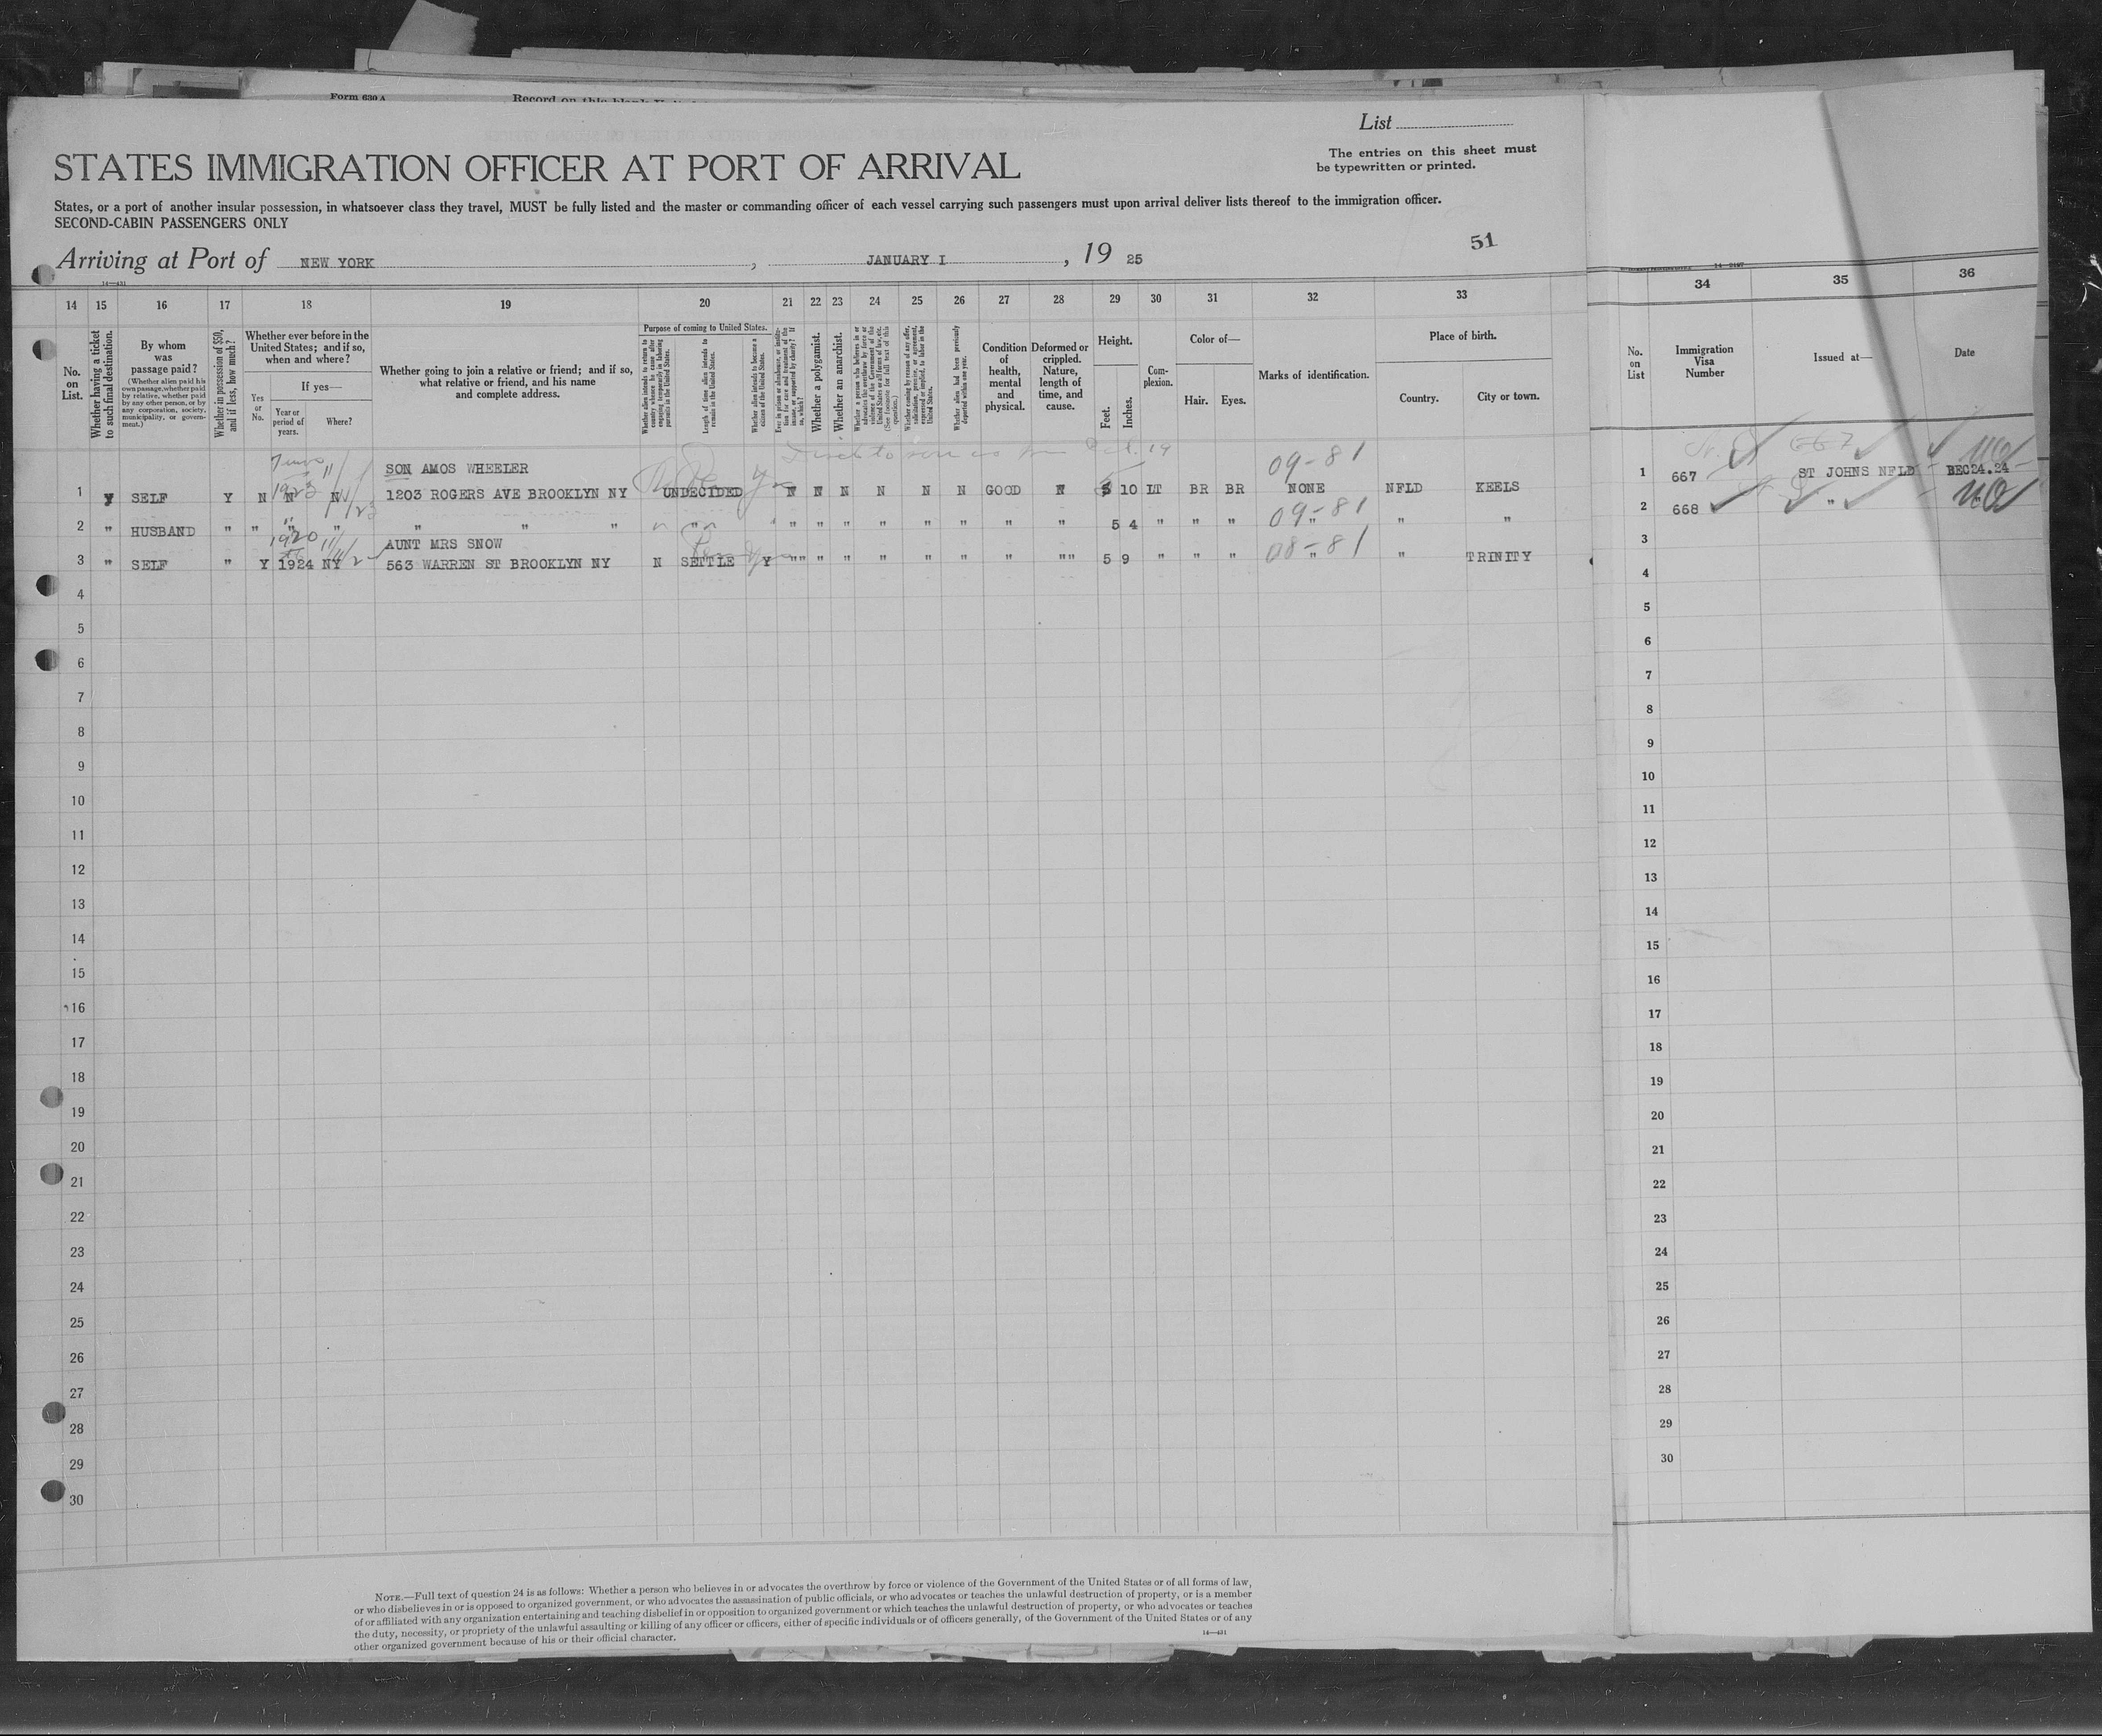 Form 630 A
Record on this blank
List
The entries on this sheet must
be typewritten or printed.
STATES IMMIGRATION OFFICER AT PORT OF ARRIVAL
States, or a port of another insular possession, in whatsoever class they travel, MUST be fully listed and the master or commanding officer of each vessel carrying such passengers must upon arrival deliver lists thereof to the immigration officer.
SECOND-CABIN PASSENGERS ONLY
51
Arriving at Port of NEW YORK, JANUARY I, 19 25
14—431
14 15 16 17 18 19 20 21 22 23 24 25 26 27 28 29 30 31 32 33 34 35 36
No. on List.
Whether having a ticket to such final destination.
By whom was passage paid?
(Whether alien paid his own passage, whether paid by relative, whether paid by any other person, or by any corporation, society, municipality, or government.)
Whether in possession of $50, and if less, how much?
Whether ever before in the United States; and if so, when and where?
Yes or No.
If yes—
Year or period of years.
Where?
Whether going to join a relative or friend; and if so, what relative or friend, and his name and complete address.
Purpose of coming to United States.
Whether alien intends to return to country whence he came after engaging temporarily in laboring pursuits in the United States.
Length of time alien intends to remain in the United States.
Whether alien intends to become a citizen of the United States.
Ever in prison or almshouse, or institution for care and treatment of the insane, or supported by charity? If so, which?
Whether a polygamist.
Whether an anarchist.
Whether a person who believes in or advocates the overthrow by force or violence of the Government of the United States or all forms of law, etc. (See footnote for full text of this question.)
Whether coming by reason of any offer, solicitation, promise, or agreement, expressed or implied, to labor in the United States.
Whether alien had been previously deported within one year.
Condition of health, mental and physical.
Deformed or crippled. Nature, length of time, and cause.
Height.
Feet. Inches.
Complexion.
Color of—
Hair. Eyes.
Marks of identification.
Place of birth.
Country. City or town.
No. on List
Immigration Visa Number
Issued at—
Date
June 1923 09-81 667
SON AMOS WHEELER
1 y SELF Y N N N 1203 ROGERS AVE BROOKLYN NY UNDECIDED N N N N N N GOOD N 5 10 LT BR BR NONE NFLD KEELS 1 667 ST JOHNS NFLD DEC24.24
2 " HUSBAND " " " " " " " " " " " " " " " " " 5 4 " " " 09-81 " " " 2 668 "
1920
AUNT MRS SNOW
3 " SELF " Y 1924 NY 563 WARREN ST BROOKLYN NY N SETTLE Y "" " " " " " " "" 5 9 " " " 08-81 " " TRINITY 3
4 4
5 5
6 6
7 7
8 8
9 9
10 10
11 11
12 12
13 13
14 14
15 15
16 16
17 17
18 18
19 19
20 20
21 21
22 22
23 23
24 24
25 25
26 26
27 27
28 28
29 29
30 30
NOTE.—Full text of question 24 is as follows: Whether a person who believes in or advocates the overthrow by force or violence of the Government of the United States or of all forms of law,
or who disbelieves in or is opposed to organized government, or who advocates the assassination of public officials, or who advocates or teaches the unlawful destruction of property, or is a member
of or affiliated with any organization entertaining and teaching disbelief in or opposition to organized government or which teaches the unlawful destruction of property, or who advocates or teaches
the duty, necessity, or propriety of the unlawful assaulting or killing of any officer or officers, either of specific individuals or of officers generally, of the Government of the United States or of any
other organized government because of his or their official character.
14—431